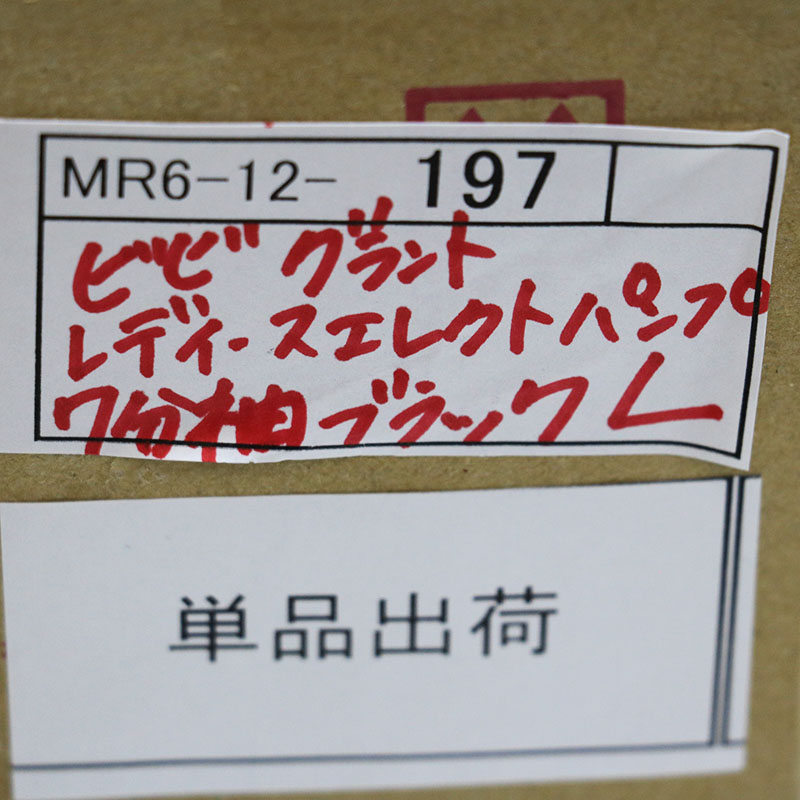 MR6-12- 197
ビビ グラント
レディースエレクトパンプ
7分袖 ブラック L
単品出荷